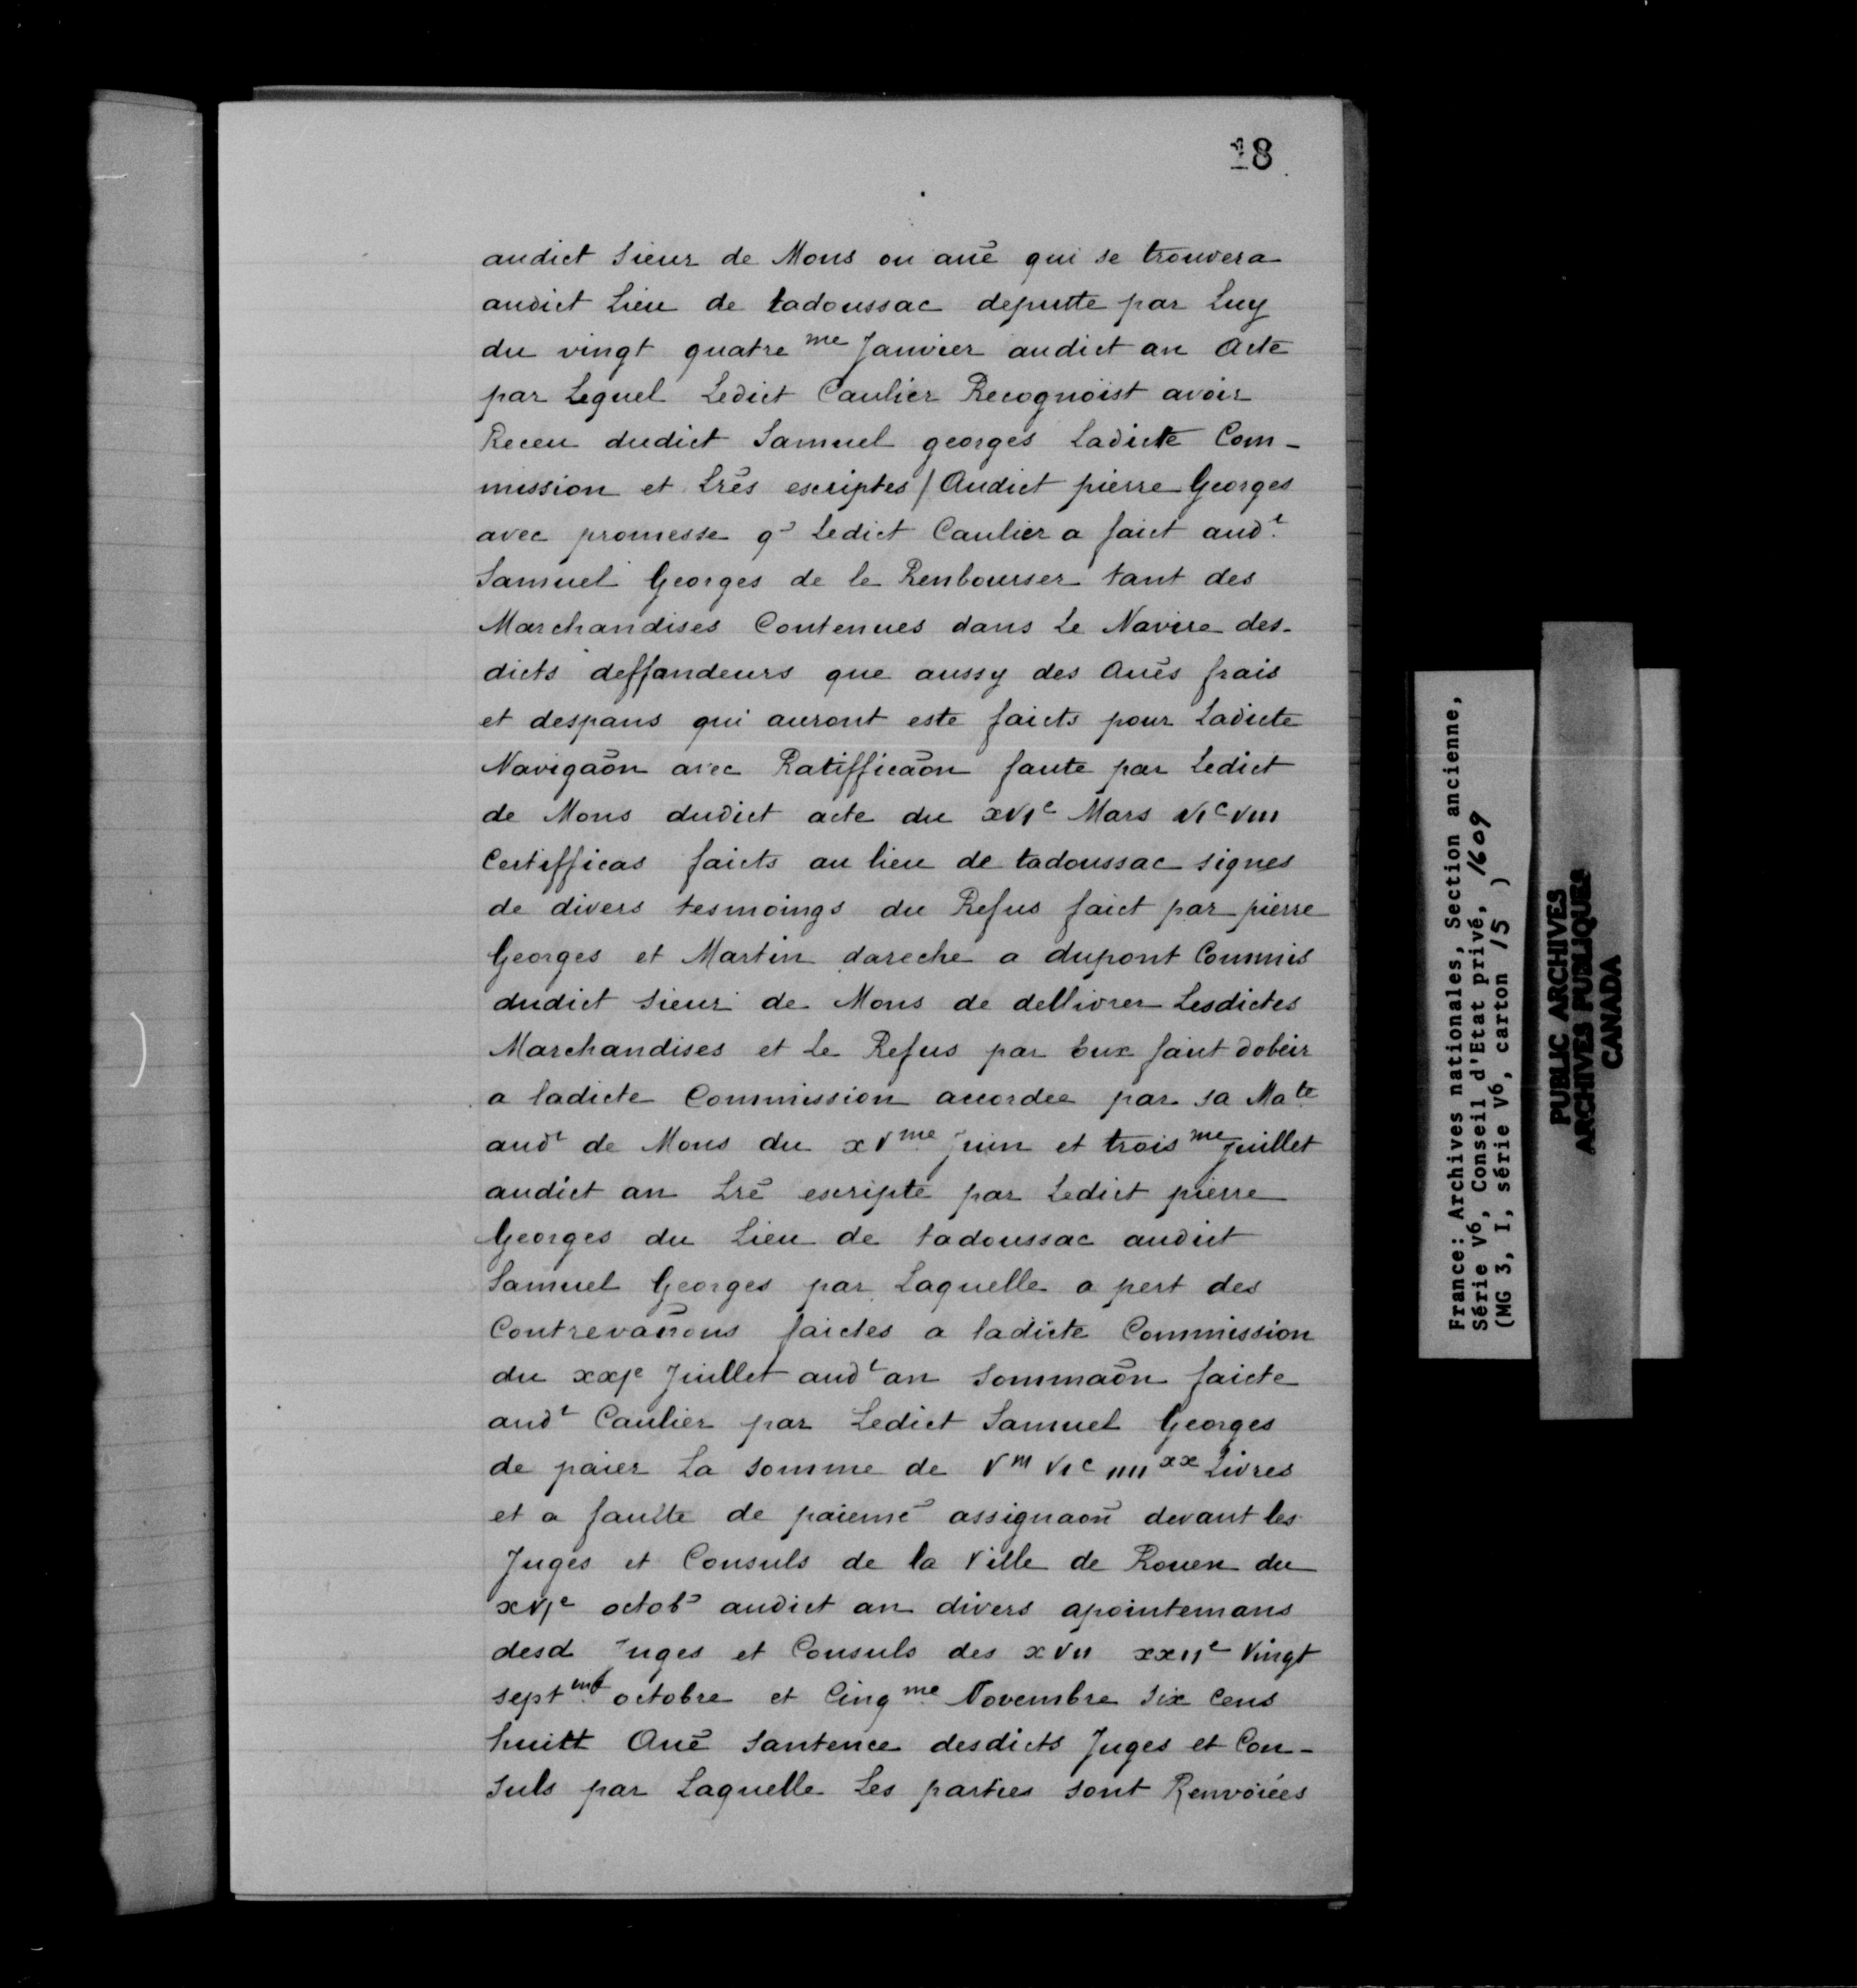 18
audict sieur de Mons ou auē qui se trouvera
audict Lieu de tadoussac deputte par Luy
du vingt quatre me Janvier audict an Acte
par Lequel Ledict Caulier Recognoist avoir
Receu dudict Samuel georges Ladicte Com-
mission et Lrēs escriptes / Audict pierre Georges
avec promesse q Ledict Caulier a faict audt
Samuel Georges de le Renbourser tant des
Marchandises Contenues dans Le Navire des-
dicts deffandeurs que aussy des Auēs frais
et despans qui auront este faicts pour Ladicte
Navigaōn avec Ratifficaōn faute par Ledict
de Mons dudict acte du xvie Mars vic viii
Certifficas faicts au lieu de tadoussac signes
de divers tesmoings du Refus faict par pierre
Georges et Martin dareche a dupont Commis
dudict sieur de Mons de dellivrer Lesdictes
Marchandises et Le Refus par Eux faict dobeir
a ladicte Commission accordee par sa Mate
audt de Mons du xvme Juin et trois me Juillet
audict an Lrē escripte par Ledict pierre
Georges du Lieu de tadoussac audict
Samuel Georges par Laquelle a pert des
Contrevanōns faictes a ladicte Commission
du xxje Juillet audt an Sommaōn faicte
audt Caulier par Ledict Samuel Georges
de paier La somme de vm vic iiiixx Livres
et a faulte de paiemē assignaōn devant les
Juges et Consuls de la Ville de Rouen du
xvje octob audict an divers apointemans
desd Juges et Consuls des xvii xxiie Vingt
sept me octobre et Cinq me Novembre Six Cens
huitt Auē Santence desdicts Juges et Con-
suls par Laquelle Les parties sont Renvoiées
France: Archives nationales, Section ancienne,
Série V6, Conseil d'Etat privé, 1609
(MG 3, I, série V6, carton 15 )
PUBLIC ARCHIVES
ARCHIVES PUBLIQUES
CANADA